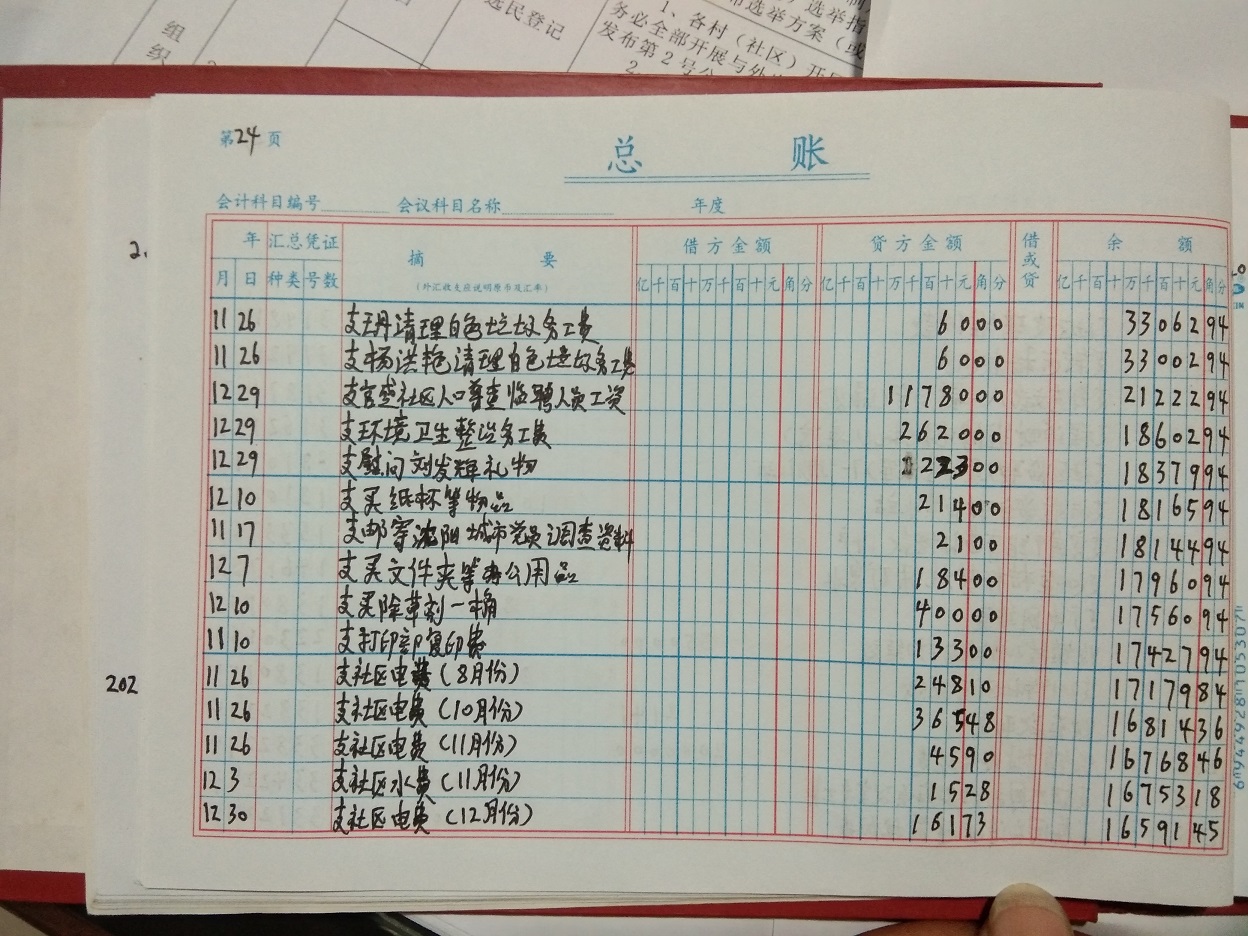 组
织
选民登记
选举指
布选举方案(或
1、各村(社区)开展
务必全部开展与外
发布第2号公
2
第24页
总 账
会计科目编号 会议科目名称 年度
年 汇总凭证 摘 要 借方金额 贷方金额 借或贷 余 额
月 日 种类 号数 (外汇收支应说明原币及汇率) 亿千百十万千百十元角分 亿千百十万千百十元角分 亿千百十万千百十元角分
11 26 支王丹清理白色垃圾务工费 6000 3306294
11 26 支杨洪艳清理白色垃圾务工费 6000 3300294
12 29 支官垄社区人口普查临聘人员工资 1178000 2122294
12 29 支环境卫生整治务工费 262000 1860294
12 29 支慰问刘发辉礼物 22300 1837994
12 10 支买纸杯等物品 21400 1816594
11 17 支邮寄沈阳城市党员调查资料 2100 1814494
12 7 支买文件夹等办公用品 18400 1796094
12 10 支买除草剂一桶 40000 1756094
11 10 支打印部复印费 13300 1742794
11 26 支社区电费(8月份) 24810 1717984
11 26 支社区电费(10月份) 36548 1681436
11 26 支社区电费(11月份) 4590 1676846
12 3 支社区水费(11月份) 1528 1675318
12 30 支社区电费(12月份) 16173 1659145
2.
202